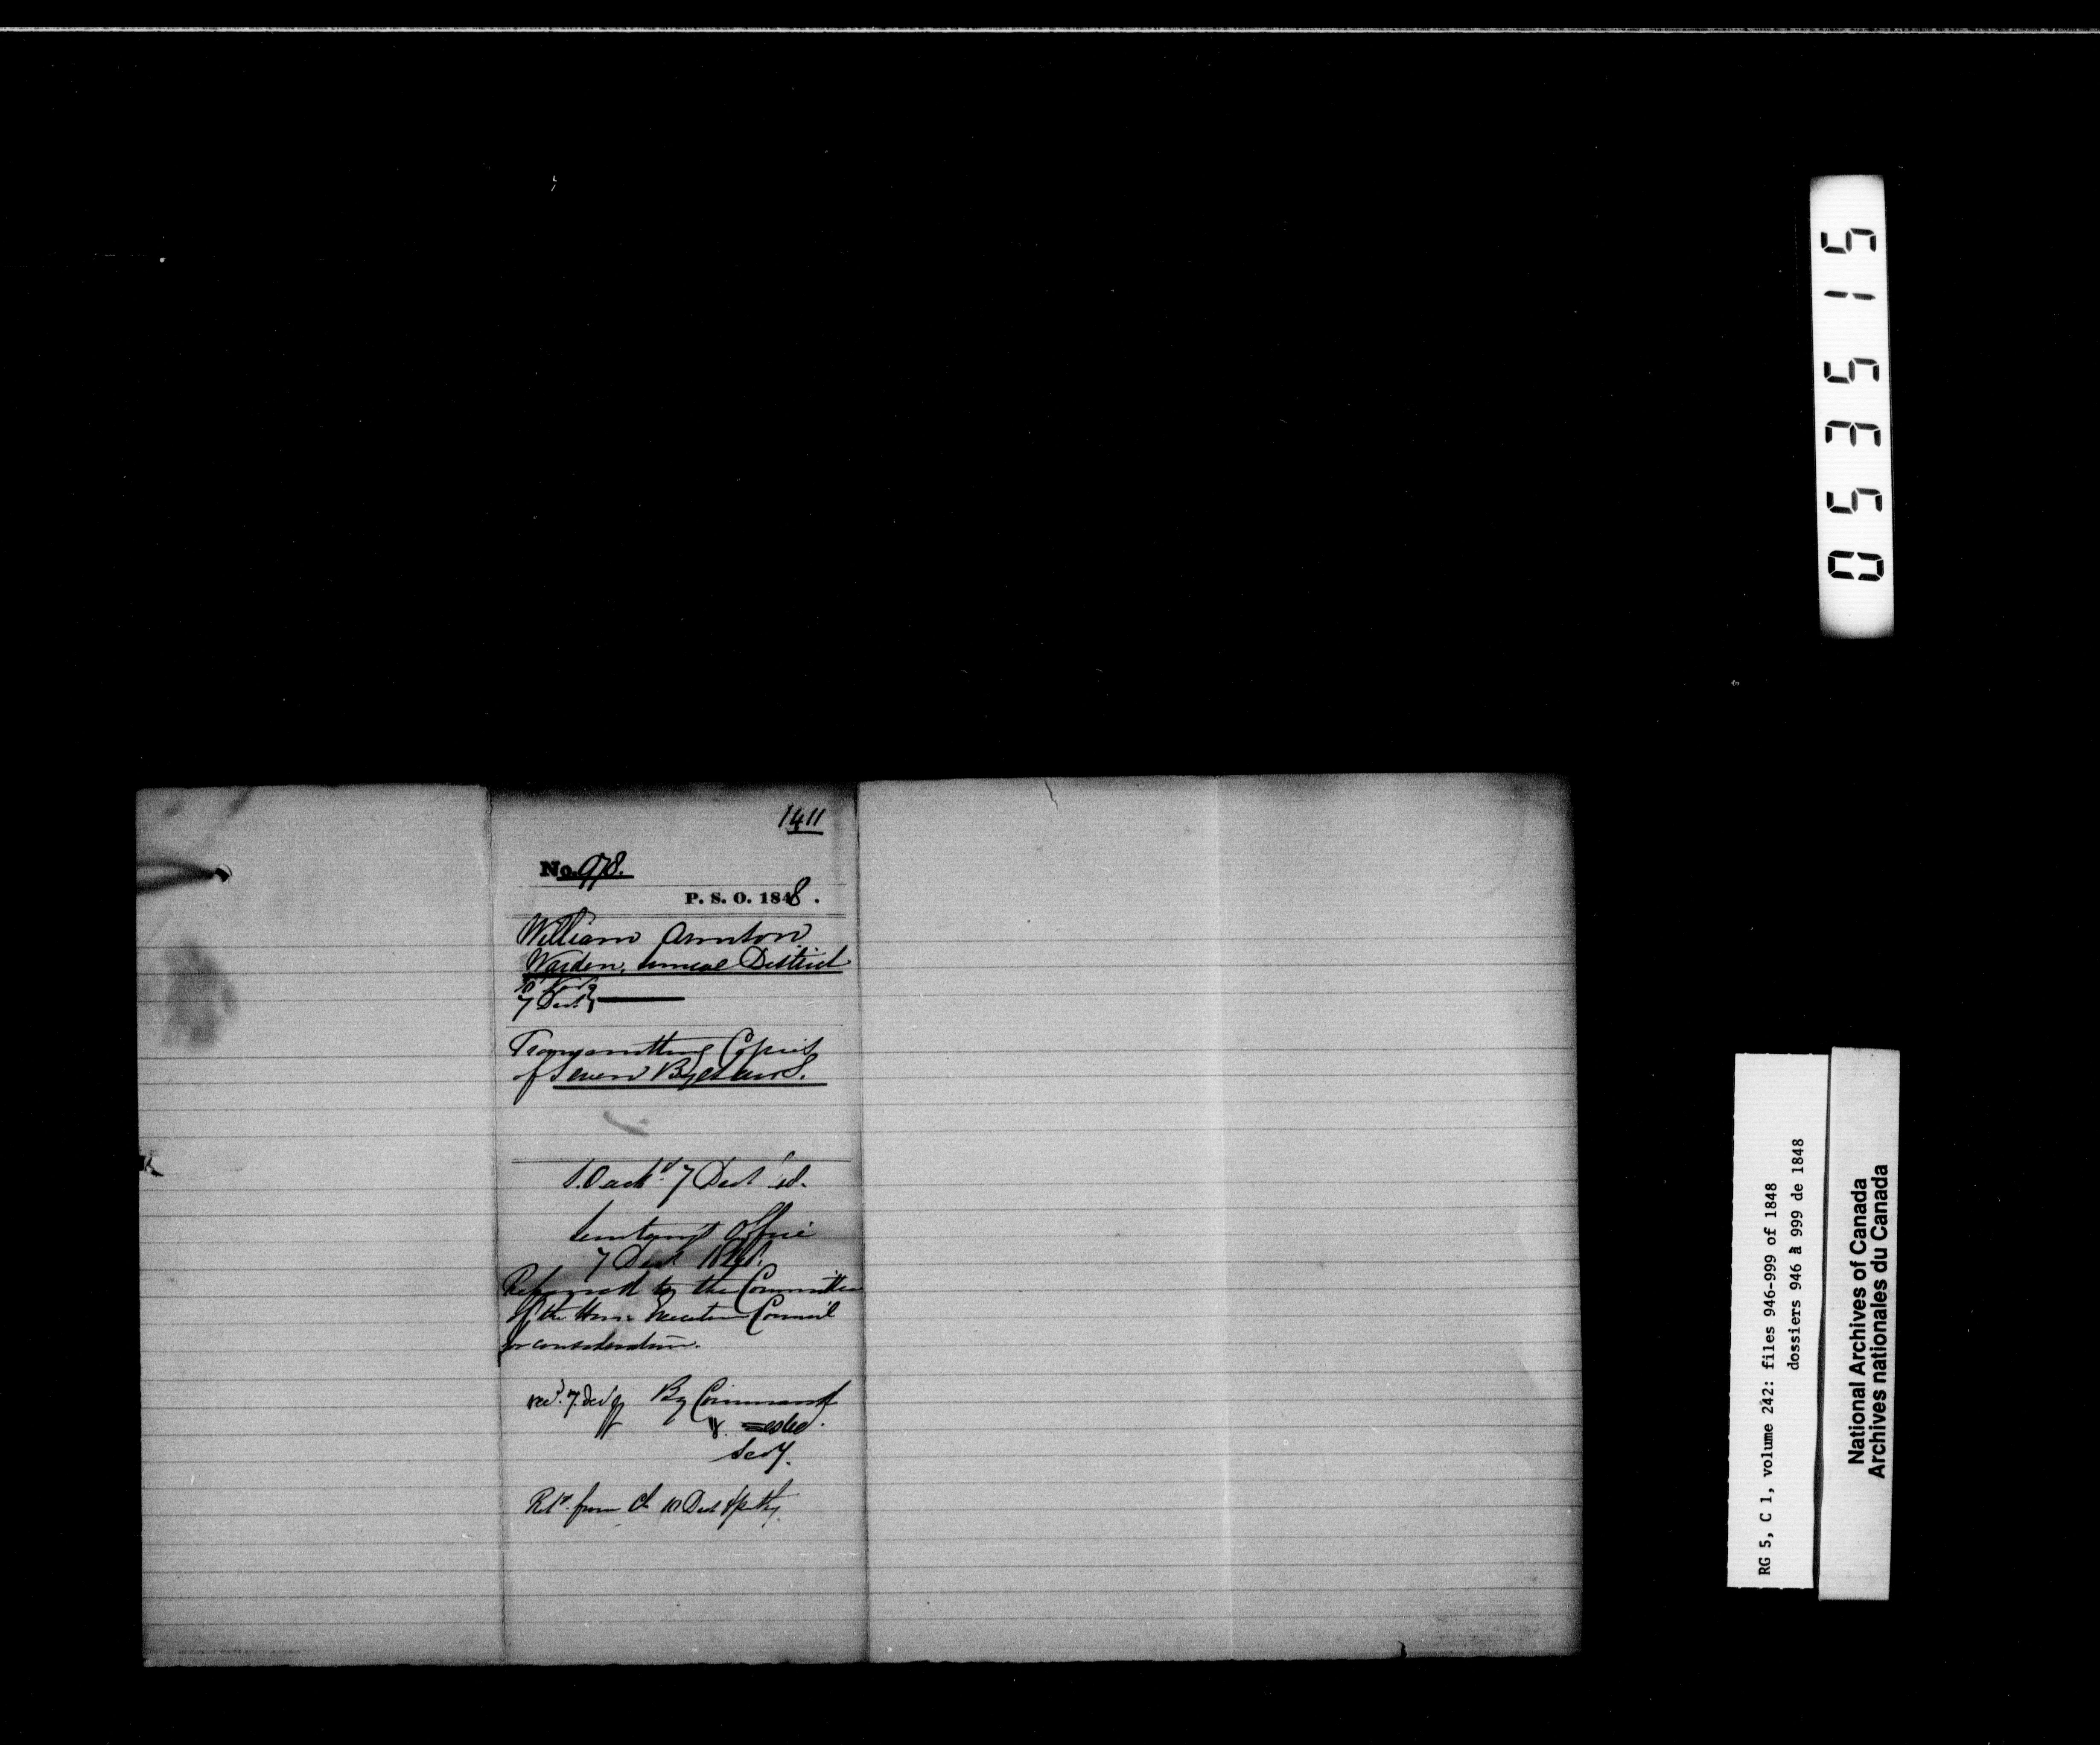 1411
No. 978.
P. S. O. 1848.
William
Warden, District
30 Nov
7 Dec
Transmitting Copies
of Seven Bye Laws.
7 Dec
Office
7 Dec 1848.
Referred to the Committee
of the Hon. Executive Council
for consideration.
rec'd. 7. Dec By Command
Secy.
Ret'd. from Cl. 10 Dec
053515
RG 5, C 1, volume 242: files 946-999 of 1848
dossiers 946 à 999 de 1848
National Archives of Canada
Archives nationales du Canada